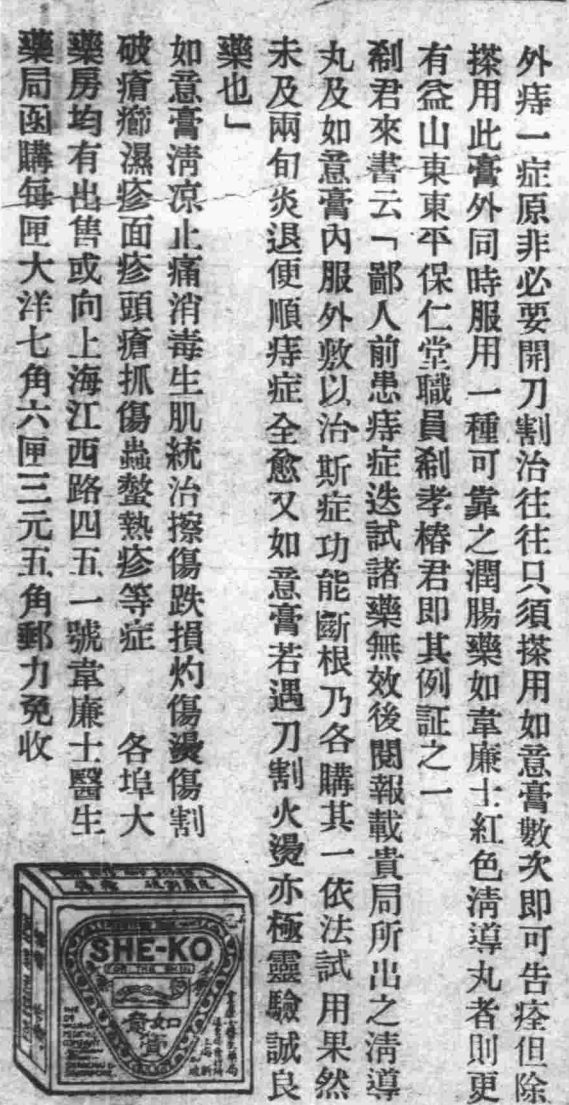 外痔一症原非必要開刀割治往往只須搽用如意膏數次即可告痊但除
搽用此膏外同時服用一種可靠之潤腸藥如韋廉士紅色清導丸者則更
有益山東東平保仁堂職員郗孝椿君即其例証之一
郗君來書云「鄙人前患痔症迭試諸藥無效後閱報載貴局所出之清導
丸及如意膏內服外敷以治斯症功能斷根乃各購其一依法試用果然
未及兩旬炎退便順痔症全愈又如意膏若遇刀割火燙亦極靈驗誠良
藥也」
如意膏淸凉止痛消毒生肌統治擦傷跌損灼傷燙傷割
破瘡癤濕疹面疹頭瘡抓傷蟲螫熱疹等症 各埠大
藥房均有出售或向上海江西路四五一號韋廉士醫生
藥局函購每匣大洋七角六匣三元五角郵力免收
SHE-KO
FOR THE SKIN
如意膏